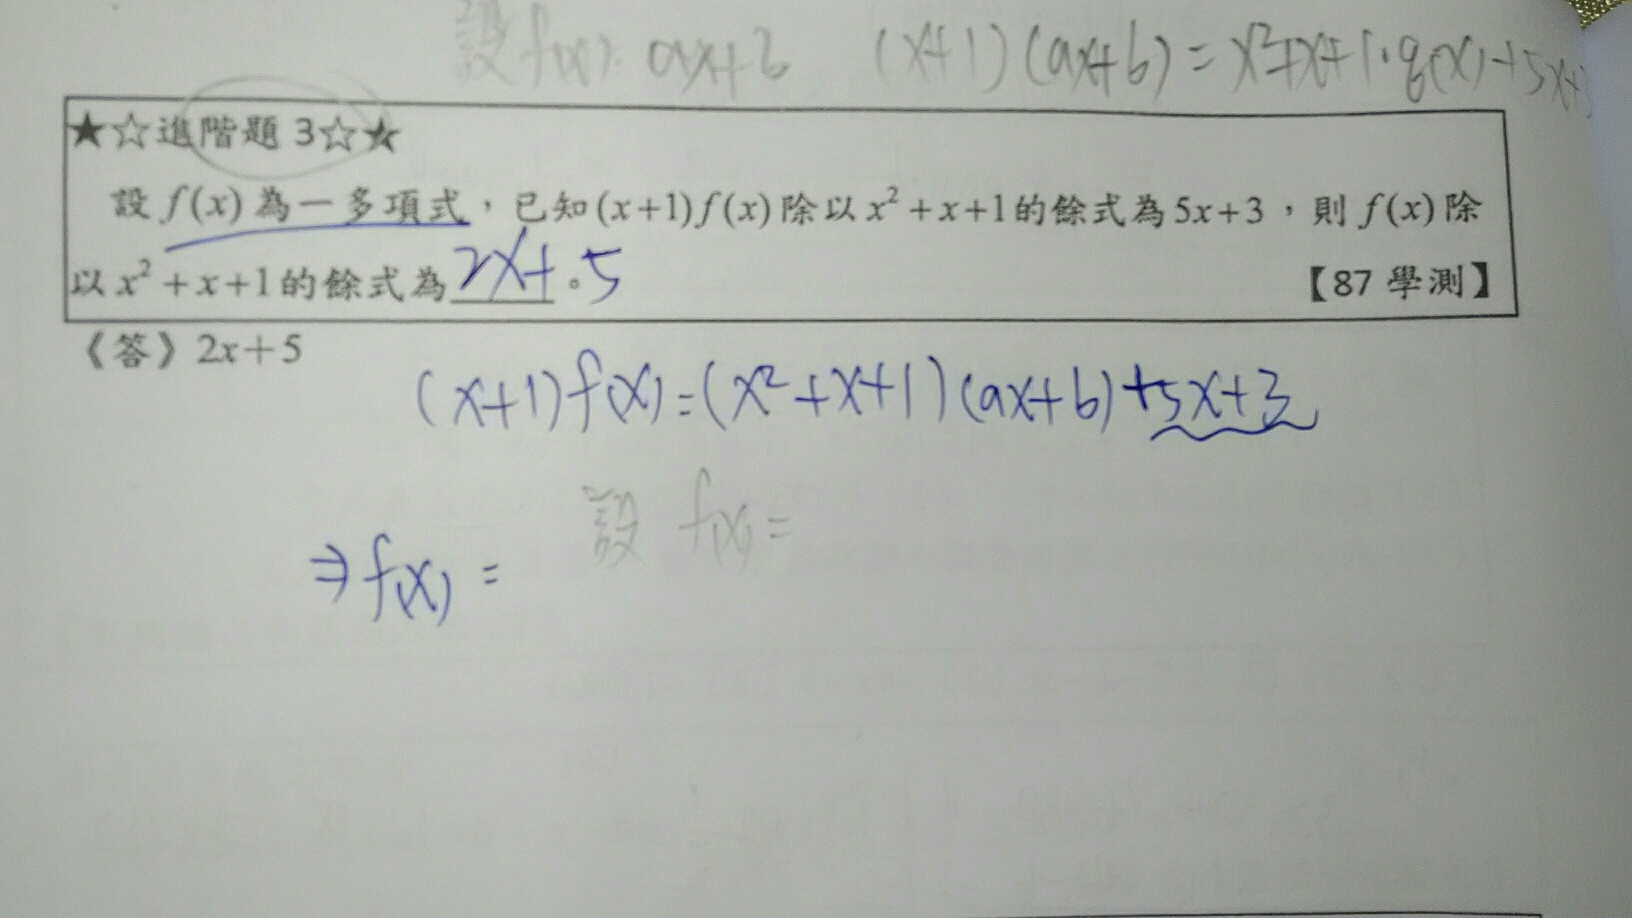 設f(x)=ax+b (x+1)(ax+b)=x²+x+1·q(x)+5x+
★☆進階題 3☆★
設 f(x) 為一多項式，已知(x+1)f(x)除以 x²+x+1的餘式為5x+3，則 f(x)除
以 x²+x+1的餘式為2x+5。【87 學測】
《答》2x+5
(x+1)f(x)=(x²+x+1)(ax+b)+5x+3
設 f(x)=
⇒f(x)=